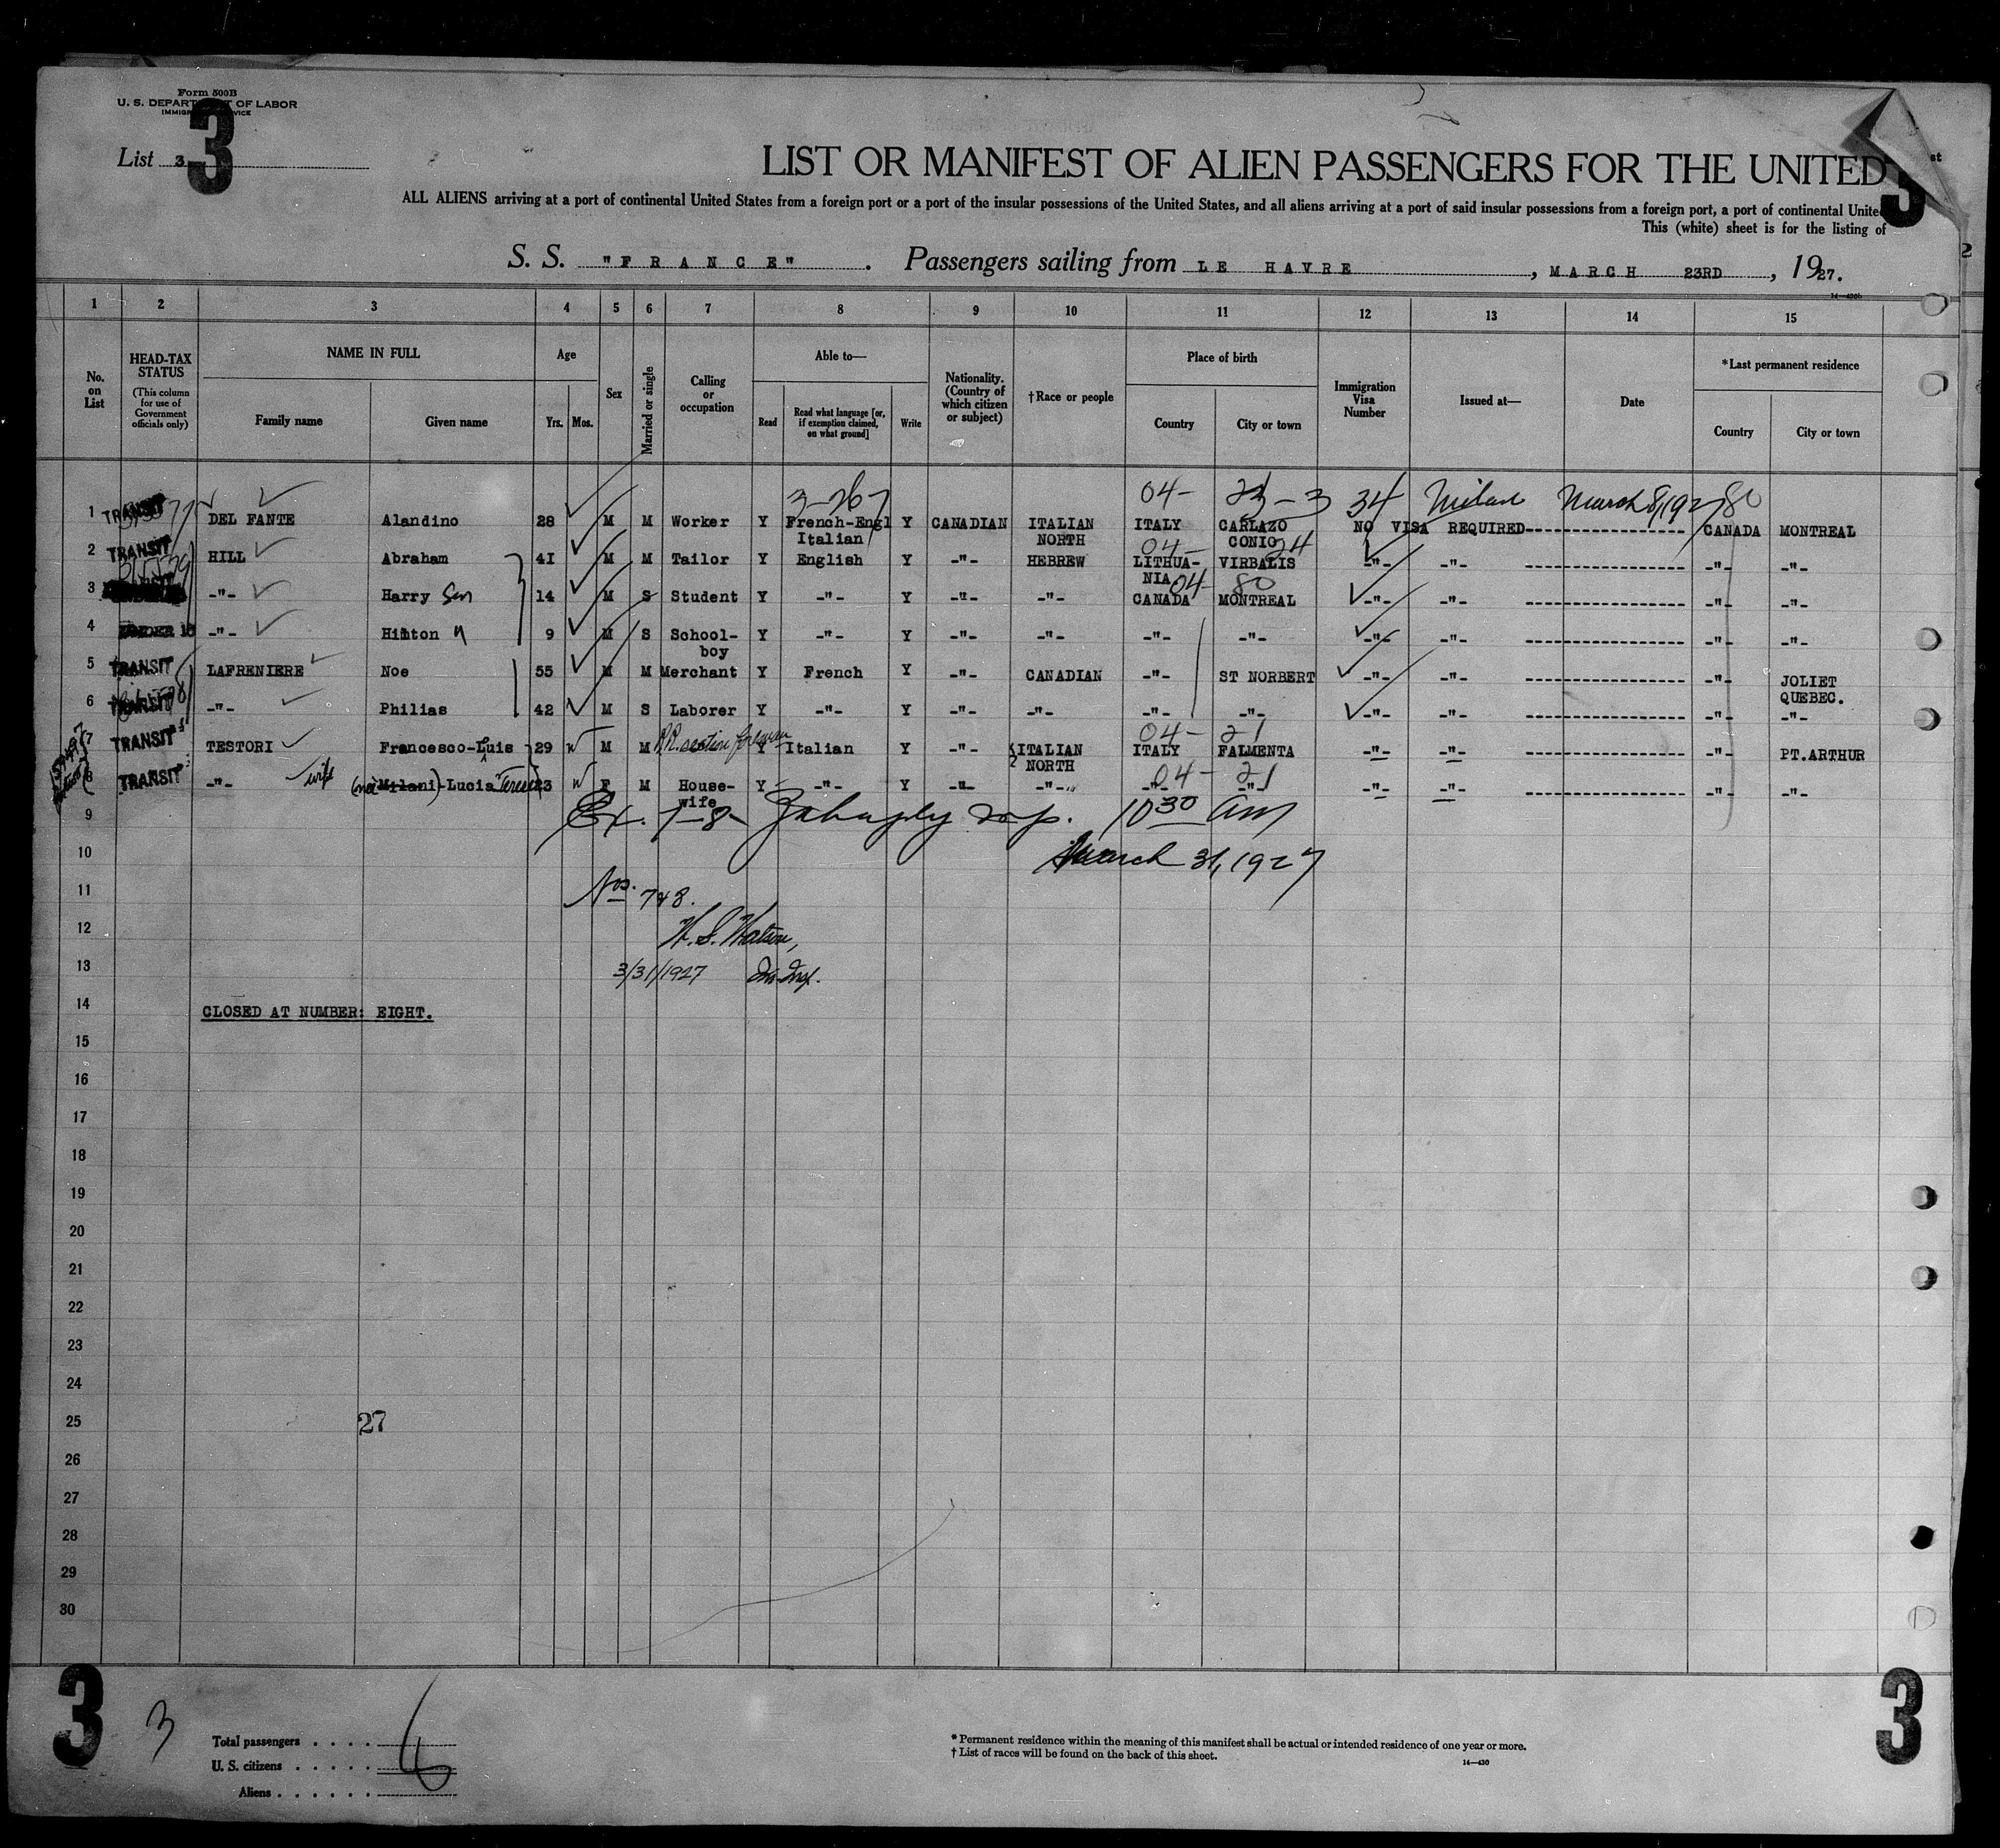 Form 500B
U. S. DEPARTMENT OF LABOR
3
List 3
LIST OR MANIFEST OF ALIEN PASSENGERS FOR THE UNITED
3
ALL ALIENS arriving at a port of continental United States from a foreign port or a port of the insular possessions of the United States, and all aliens arriving at a port of said insular possessions from a foreign port, a port of continental Unite
This (white) sheet is for the listing of
S. S. "FRANCE". Passengers sailing from LE HAVRE, MARCH 23RD, 1927.
1 2 3 4 5 6 7 8 9 10 11 12 13 14 15
No. on List
HEAD-TAX STATUS (This column for use of Government officials only)
NAME IN FULL
Family name Given name
Age
Yrs. Mos.
Sex
Married or single
Calling or occupation
Able to—
Read
Read what language [or, if exemption claimed, on what ground]
Write
Nationality. (Country of which citizen or subject)
†Race or people
Place of birth
Country City or town
Immigration Visa Number
Issued at—
Date
*Last permanent residence
Country City or town
3-26 04- 34 Milan March 8, 1927 80
1 TRANSIT DEL FANTE Alandino 28 M M Worker Y French-Engl Italian Y CANADIAN ITALIAN NORTH ITALY CARLAZO CONIO NO VISA REQUIRED CANADA MONTREAL
04- 24
2 TRANSIT HILL Abraham 41 M M Tailor Y English Y -"- HEBREW LITHUA-NIA VIRBALIS -"- -"- -"- -"-
04- 80
3 -"- Harry Son 14 M S Student Y -"- Y -"- -"- CANADA MONTREAL -"- -"- -"- -"-
4 UNDER 16 -"- Hilton " 9 M S School-boy Y -"- Y -"- -"- -"- -"- -"- -"- -"- -"-
5 TRANSIT LAFRENIERE Noe 55 M M Merchant Y French Y -"- CANADIAN -"- ST NORBERT -"- -"- -"- JOLIET QUEBEC.
6 TRANSIT -"- Philias 42 M S Laborer Y -"- Y -"- -"- -"- -"- -"- -"- -"- -"-
04- 21
7 TRANSIT TESTORI Francesco-Luis 29 M M RR. section foreman Y Italian Y -"- ITALIAN NORTH ITALY FALMENTA -"- -"- -"- PT.ARTHUR
04- 21
8 TRANSIT -"- wife (nee Milani)-Lucia Teresa 23 F M House-wife Y -"- Y -"- -"- -"- -"- -"- -"- -"- -"-
9 Ex. 1-8- Insp. 10 30 am
10 March 31, 1927
11 Nos. 7&8.
12 W. S. Watson,
13 3/31/1927 Im. Insp.
14 CLOSED AT NUMBER: EIGHT.
15
16
17
18
19
20
21
22
23
24
25 27
26
27
28
29
30
3 3 3
Total passengers . . . . 6
U. S. citizens . . . . .
Aliens . . . . . .
* Permanent residence within the meaning of this manifest shall be actual or intended residence of one year or more.
† List of races will be found on the back of this sheet.
14—430